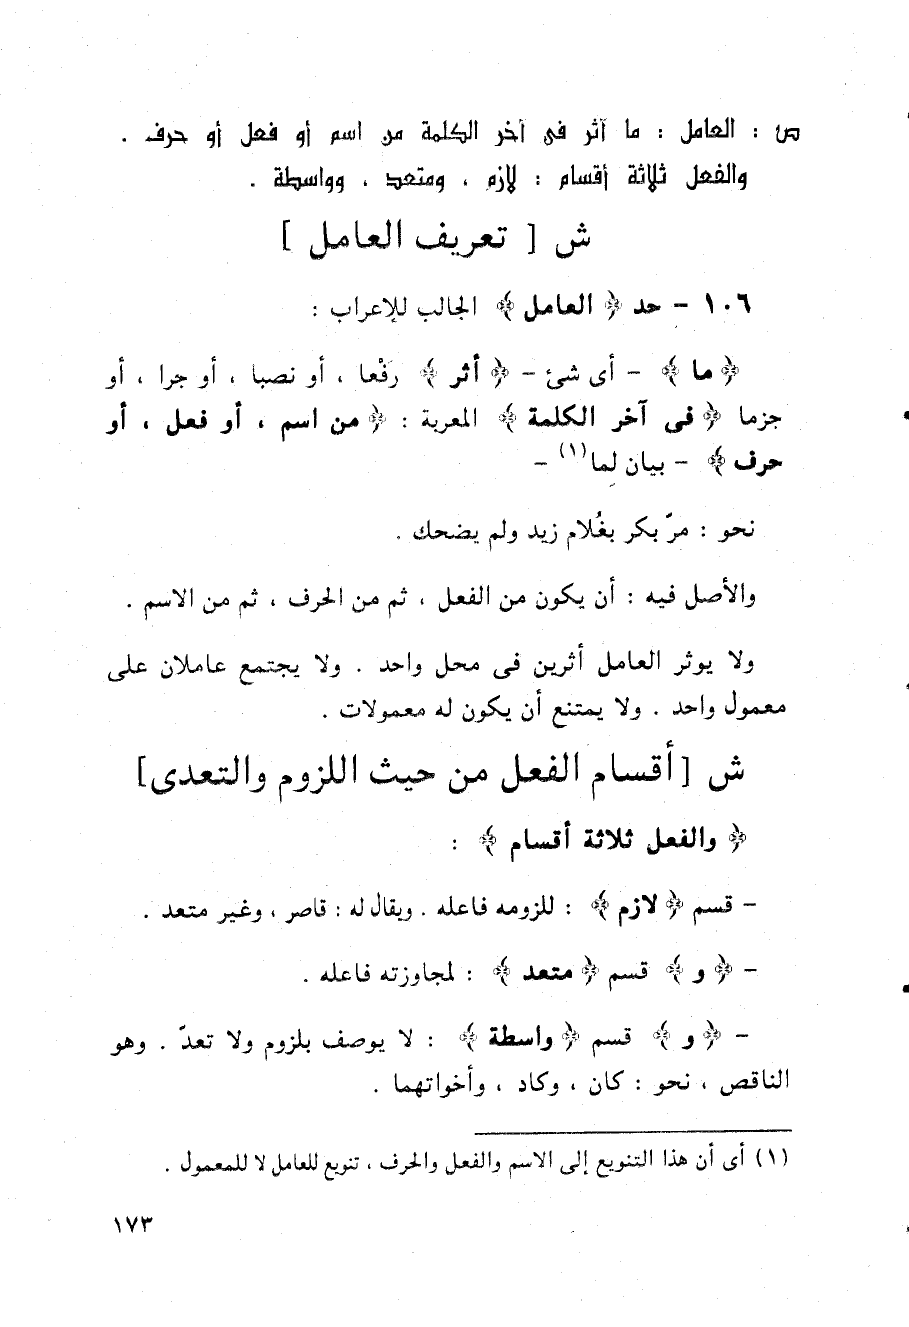 ص : العامل : ما آثر فى آخر الكلمة من اسم أو فعل أو حرف .
والفعل ثلاثة أقسام : لازم ، ومتعد ، وواسطة .
ش [ تعريف العامل ]
١٠٦ - حد ﴿ العامل ﴾ الجالب للإعراب :
﴿ ما ﴾ - أى شئ - ﴿ أثر ﴾ رَفْعا ، أو نصبا ، أو جرا ، أو
جزما ﴿ فى آخر الكلمة ﴾ المعربة : ﴿ من اسم ، أو فعل ، أو
حرف ﴾ - بيان لما (١) -
نحو : مرّ بكر بغُلام زيد ولم يضحك .
والأصل فيه : أن يكون من الفعل ، ثم من الحرف ، ثم من الاسم .
ولا يوثر العامل أثرين فى محل واحد . ولا يجتمع عاملان على
معمول واحد . ولا يمتنع أن يكون له معمولات .
ش [أقسام الفعل من حيث اللزوم والتعدى]
﴿ والفعل ثلاثة أقسام ﴾ :
- قسم ﴿ لازم ﴾ : للزومه فاعله . ويقال له : قاصر ، وغير متعد .
- ﴿ و ﴾ قسم ﴿ متعد ﴾ : لمجاوزته فاعله .
- ﴿ و ﴾ قسم ﴿ واسطة ﴾ : لا يوصف بلزوم ولا تعدّ . وهو
الناقص ، نحو : كان ، وكاد ، وأخواتهما .
(١) أى أن هذا التنويع إلى الاسم والفعل والحرف ، تنويع للعامل لا للمعمول .
١٧٣